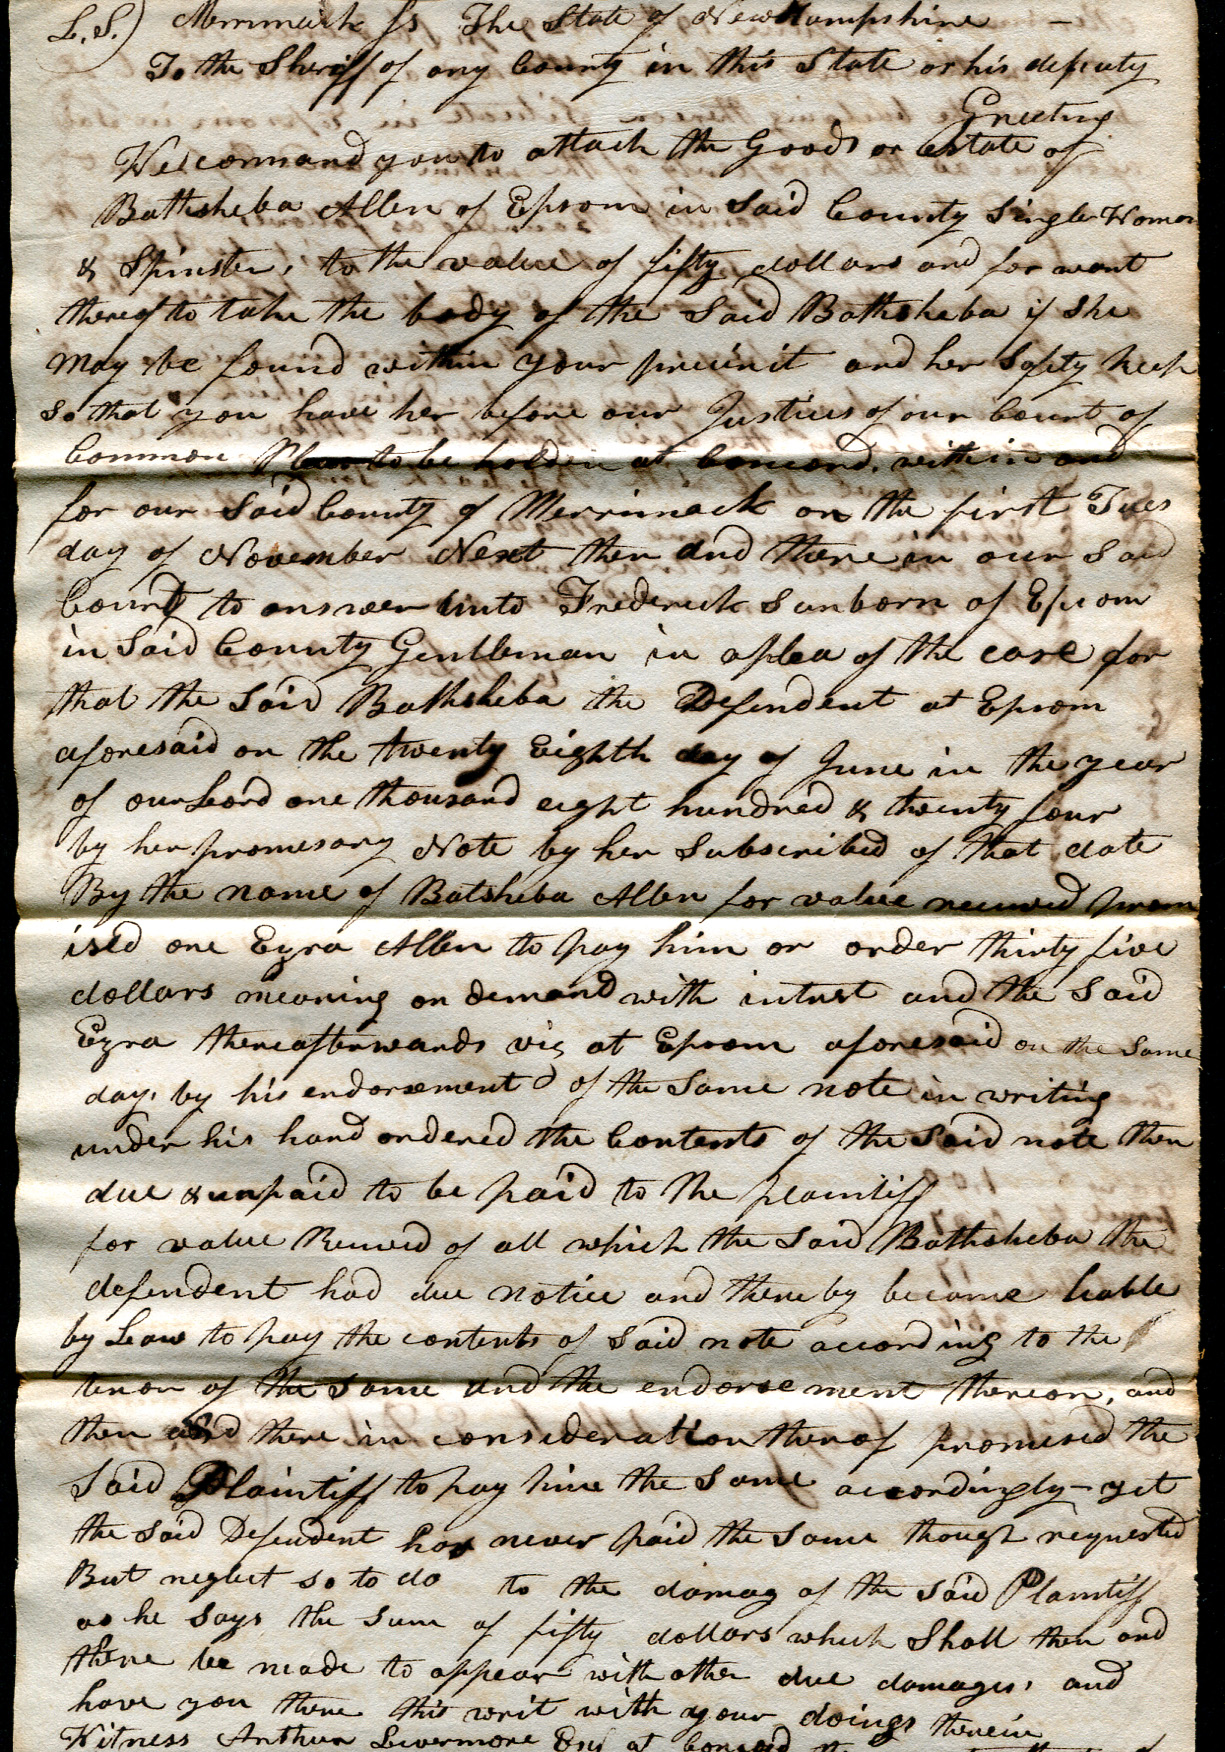 L.S.) Merrimack Ss The State of New Hampshire —
To the Sheriff of any County in this State or his deputy
Greeting
We command you to attach the Goods or Estate of
Bathsheba Allen of Epsom in Said County Single Woman
& Spinster, to the value of fifty dollars and for want
thereof to take the body of the Said Bathsheba if She
may be found within your precinct and her Safety keep
So that you have her before our Justices of our Court of
Common Pleas to be holden at Concord, within and
for our Said County of Merrimack on the first Tues
day of November Next then and there in our Said
Court to answer unto Frederick Sanborn of Epsom
in Said County Gentleman in a plea of the case for
that the Said Bathsheba the Defendent at Epsom
aforesaid on the twenty Eighth day of June in the year
of our Leord one thousand eight hundred & twenty four
by her promesary Note by her Subscribed of that date
By the name of Batsheba Allen for value received prom
ised one Ezra Allen to pay him or order thirty five
dollars meaning on demand with intrest and the Said
Ezra thereafterwards viz at Epsom aforesaid on the Same
day, by his endorsement of the Same note in writing
under his hand ordered the Contents of the Said note then
due & unpaid to be paid to the plaintiff
for value Received of all which the Said Bathsheba the
defendent had due notice and thereby became liable
by Leaw to pay the contents of Said note according to the
tenor of the Same and the endorsement thereon, and
then and there in consideration therof promised the
Said Plaintiff to pay him the Same accordingly – yet
the Said Defendent has never paid the Same though requested
But neglect so to do to the damag of the Said Plaintiff
as he Says the Sum of fifty dollars which Shall then and
there be made to appear with other due damages, and
have you there this writ with your doings therein
Witness Arthur Livermore Esq at Concord the